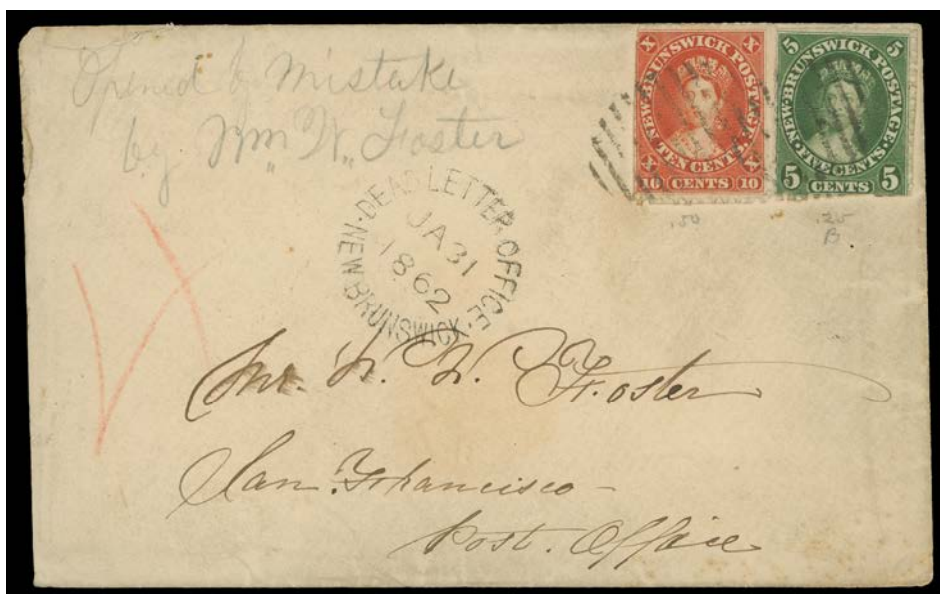 Opened by Mistake
by Wm. W. Foster
X NEW BRUNSWICK POSTAGE X
X TEN CENTS X
10 CENTS 10
5 NEW BRUNSWICK POSTAGE 5
FIVE CENTS
5 CENTS 5
.50
.25
B
DEAD LETTER OFFICE
JA 31
1862
NEW BRUNSWICK
Mr. W. W. Foster
San Francisco
Post. Office